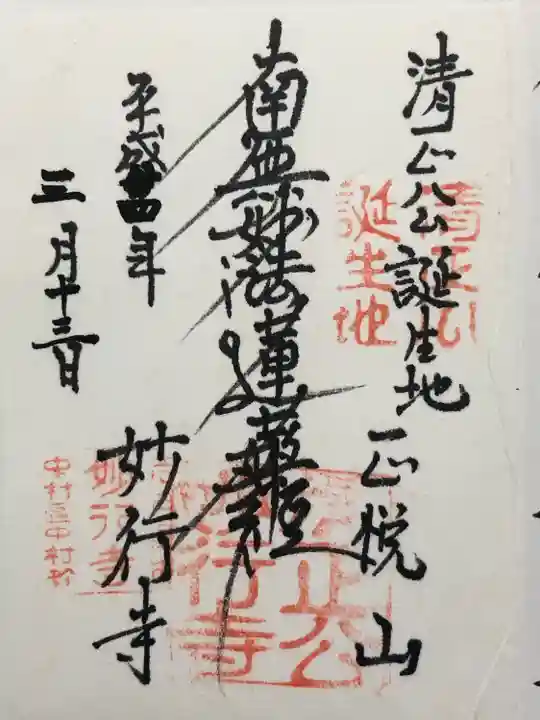 清正公誕生地
正悦山
南無妙法蓮華経
平成
年
三月十三日
妙行寺
清正公
誕生地
正公
妙行寺
妙行寺
中村